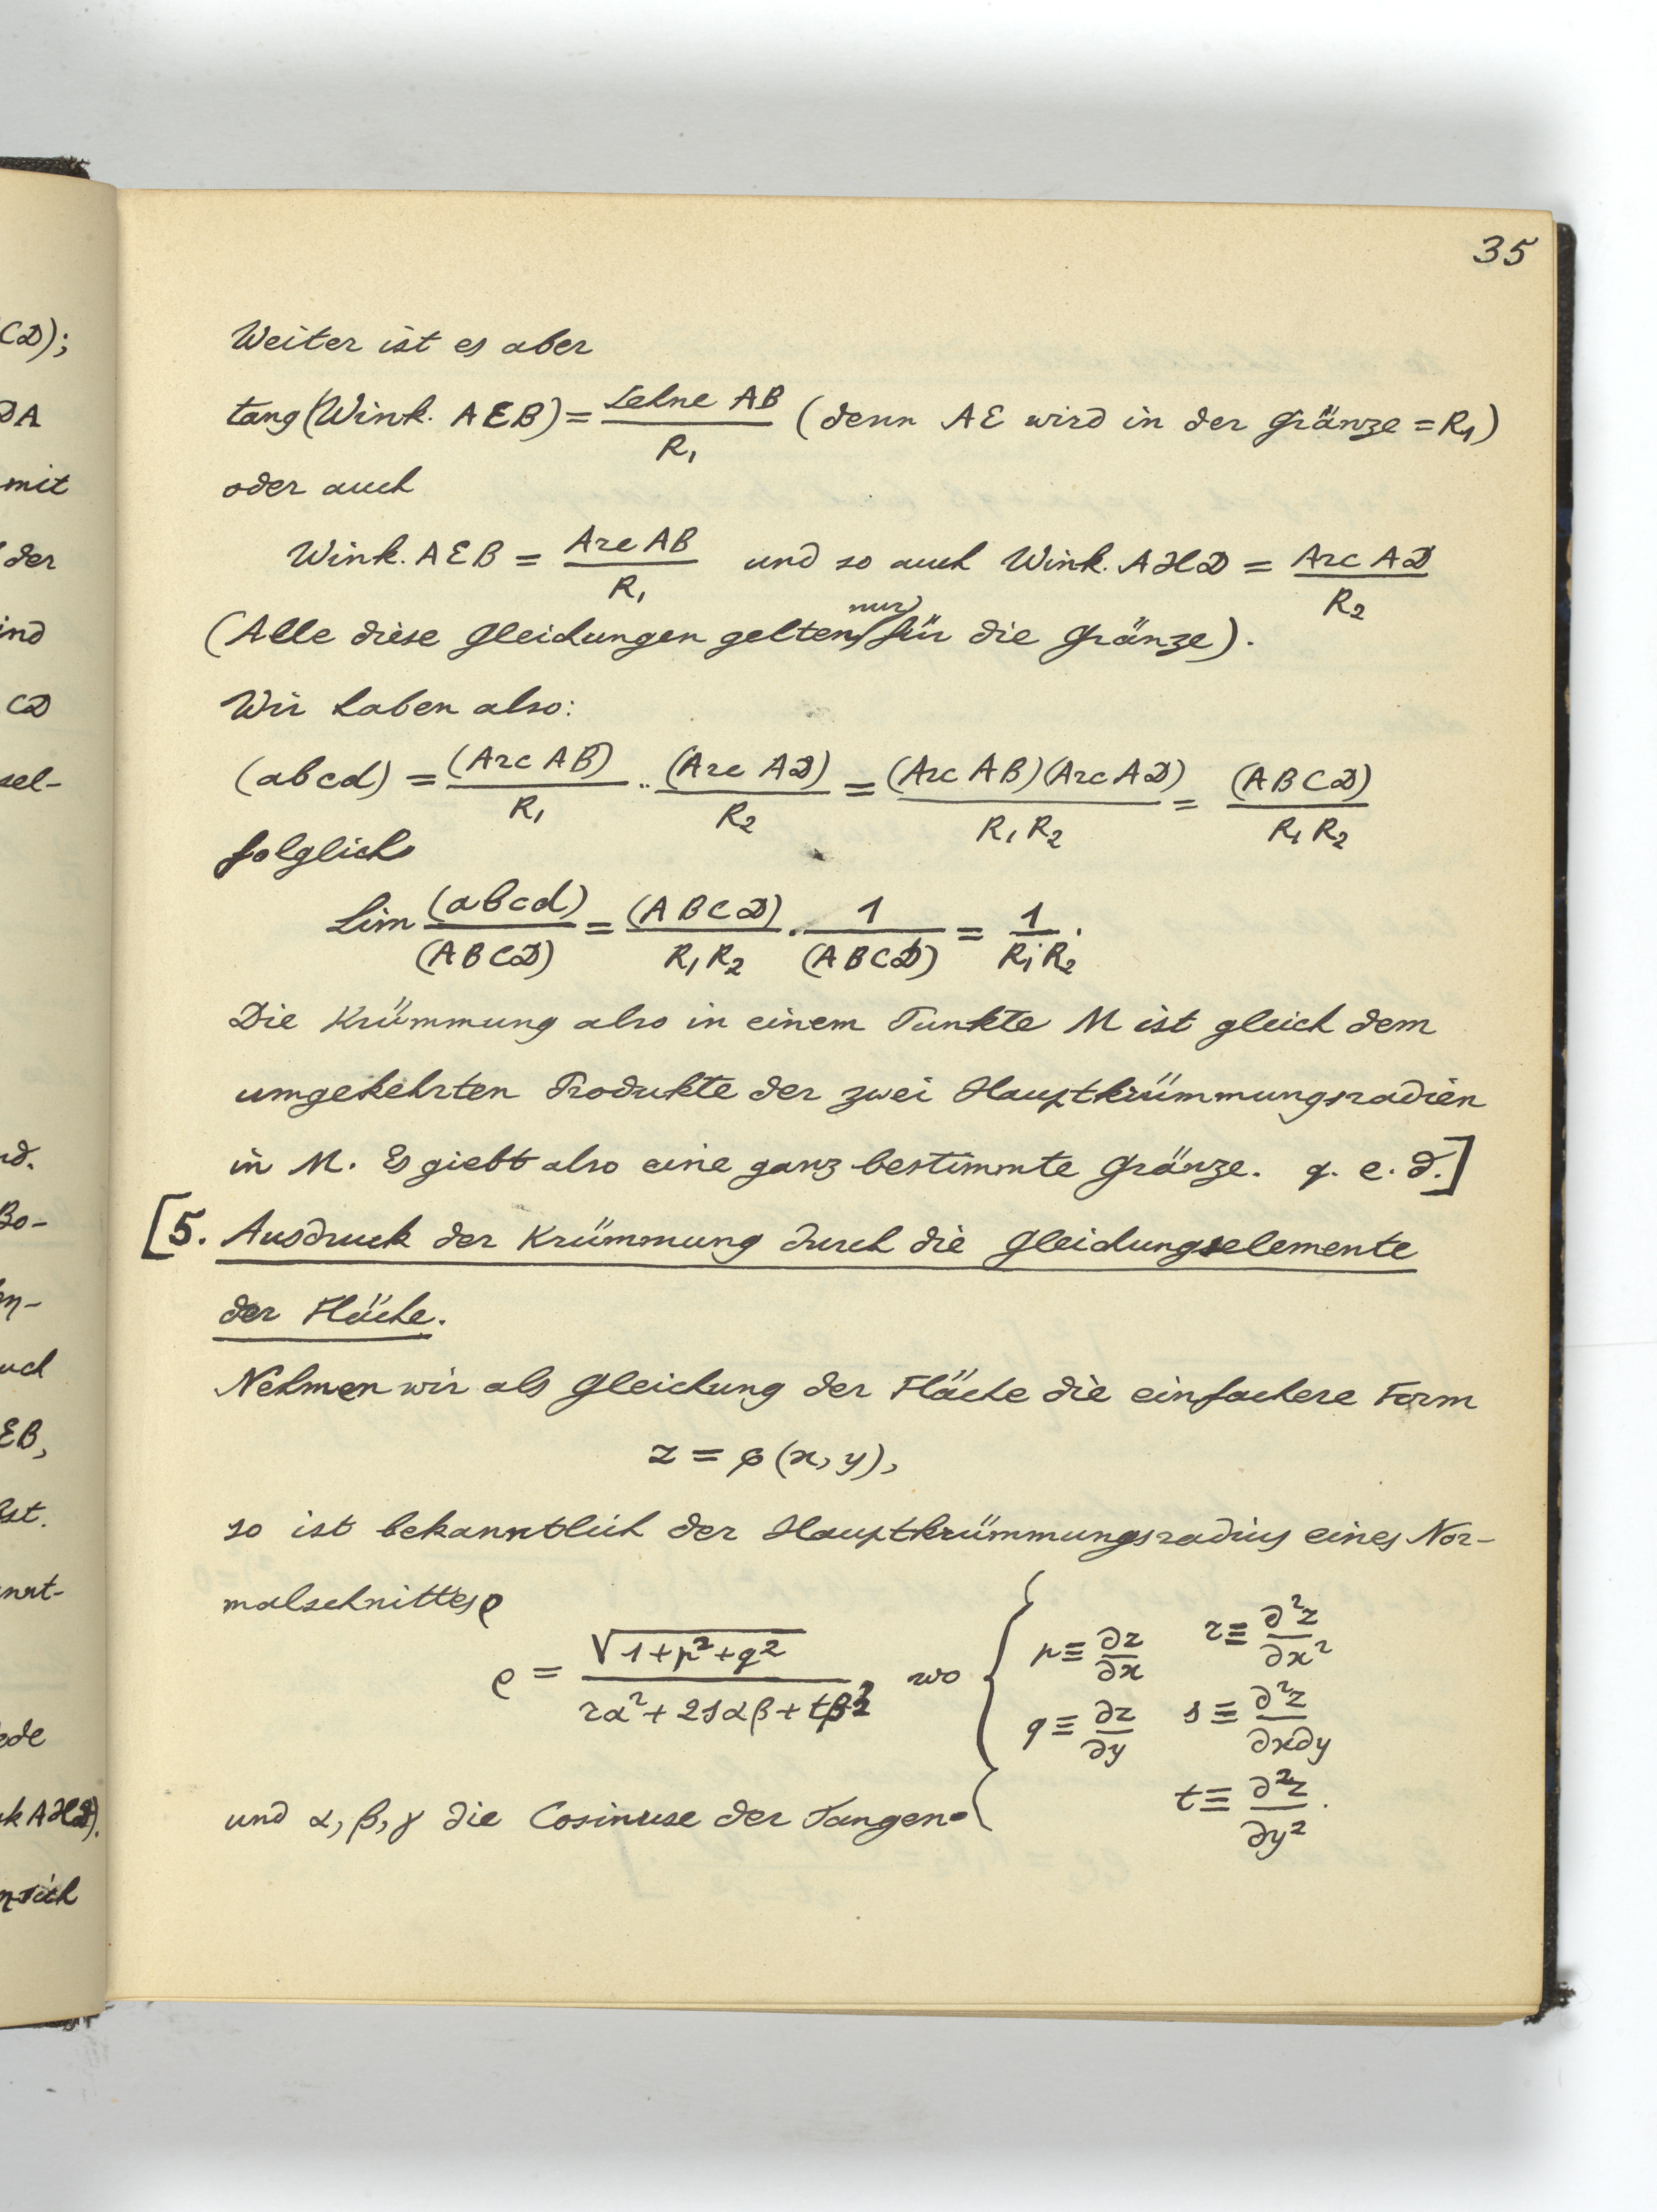 35
Weiter ist es aber
tang(Wink. AEB) = Sehne AB / R₁ (denn AE wird in der Gränze = R₁)
oder auch
Wink. AEB = Arc AB / R₁ und so auch Wink. AHD = Arc AD / R₂
(Alle diese Gleichungen gelten nur für die Gränze).
Wir haben also:
(abcd) = (Arc AB) / R₁ · (Arc AD) / R₂ = (Arc AB)(Arc AD) / R₁R₂ = (ABCD) / R₁R₂
folglich
Lim (abcd) / (ABCD) = (ABCD) / R₁R₂ · 1 / (ABCD) = 1 / R₁R₂.
Die Krümmung also in einem Punkte M ist gleich dem
umgekehrten Produkte der zwei Hauptkrümmungsradien
in M. Es giebt also eine ganz bestimmte Gränze. q. e. d.]
[5. Ausdruck der Krümmung durch die Gleichungselemente
der Fläche.
Nehmen wir als Gleichung der Fläche die einfachere Form
z = φ(x, y),
so ist bekanntlich der Hauptkrümmungsradius eines Nor-
malschnittes ρ
ρ = √(1+p²+q²) / (rα² + 2sαβ + tβ²), wo { p ≡ ∂z/∂x r ≡ ∂²z/∂x²
q ≡ ∂z/∂y s ≡ ∂²z/∂x∂y
t ≡ ∂²z/∂y².
und α, β, γ die Cosinuse der Tangen-
CD);
DA
mit
der
ind
CD
sel-
nd.
Bo-
en-
uch
EB,
bst.
nnt-
ede
nk AHD).